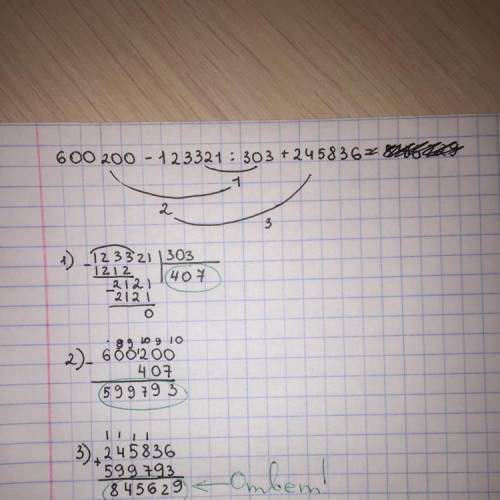 600 200 - 123321 : 303 + 245836 =
1
2
3
1) - 123321 | 303
1212 407
- 2121
2121
0
2) - 600200
407
599793
1 1 1 1
3) + 245836
599793
845629 ← Ответ!